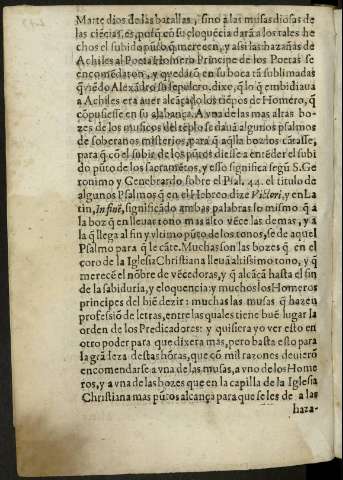 Marte dios de las batallas, sino a las musas diosas de
las ciẽcias, es, porq̃ cõ su eloquẽcia darã a los tales he
chos el subido pũto q̃ merecen, y assi las hazañas de
Achiles al Poeta Homero Principe de los Poetas se
encomẽdaron, y quedarõ en su boca tã sublimadas
q̃ viẽdo Alexãdro su sepulcro, dixe, q̃ lo q̃ embidiaua
a Achiles era auer alcãçado los tiẽpos de Homero, q̃
cõpusiesse en su alabança. A vna de las mas altas bo-
zes de los musicos del tẽplo se dauã algunos psalmos
de soberanos misterios, para q̃ aq̃lla boz los cãtasse,
para q̃ cõ el subir de los pũtos diesse a entẽder el subi
do pũto de los sacramẽtos, y esso significa segũ S. Ge
ronimo y Genebrardo sobre el Psal. 44. el titulo de
algunos Psalmos q̃ en el Hebreo dize Victori, y en La
tin, In finẽ, significãdo ambas palabras lo mismo q̃ a
la boz q̃ en lleuar tono mas alto vẽce las demas, y a
la q̃ llega al fin y vltimo pũto de los tonos, se dè aquel
Psalmo para q̃ le cãte. Muchas son las bozes q̃ en el
coro de la Iglesia Christiana lleuã altissimo tono, y q̃
merecẽ el nõbre de vẽcedoras, y q̃ alcãçã hasta el fin
de la sabiduria, y eloquencia: y muchos los Homeros
principes del biẽ dezir: muchas las musas q̃ hazen
professiõ de letras, entre las quales tiene buẽ lugar la
orden de los Predicadores: y quisiera yo ver esto en
otro poder para que dixera mas, pero basta esto para
la grãdeza destas hõras, que cõ mil razones deuierõ
encomendarse a vna de las musas, a vno de los Home
ros, y a vna de las bozes que en la capilla de la Iglesia
Christiana mas pũtos alcança para que se les de a las
haza-